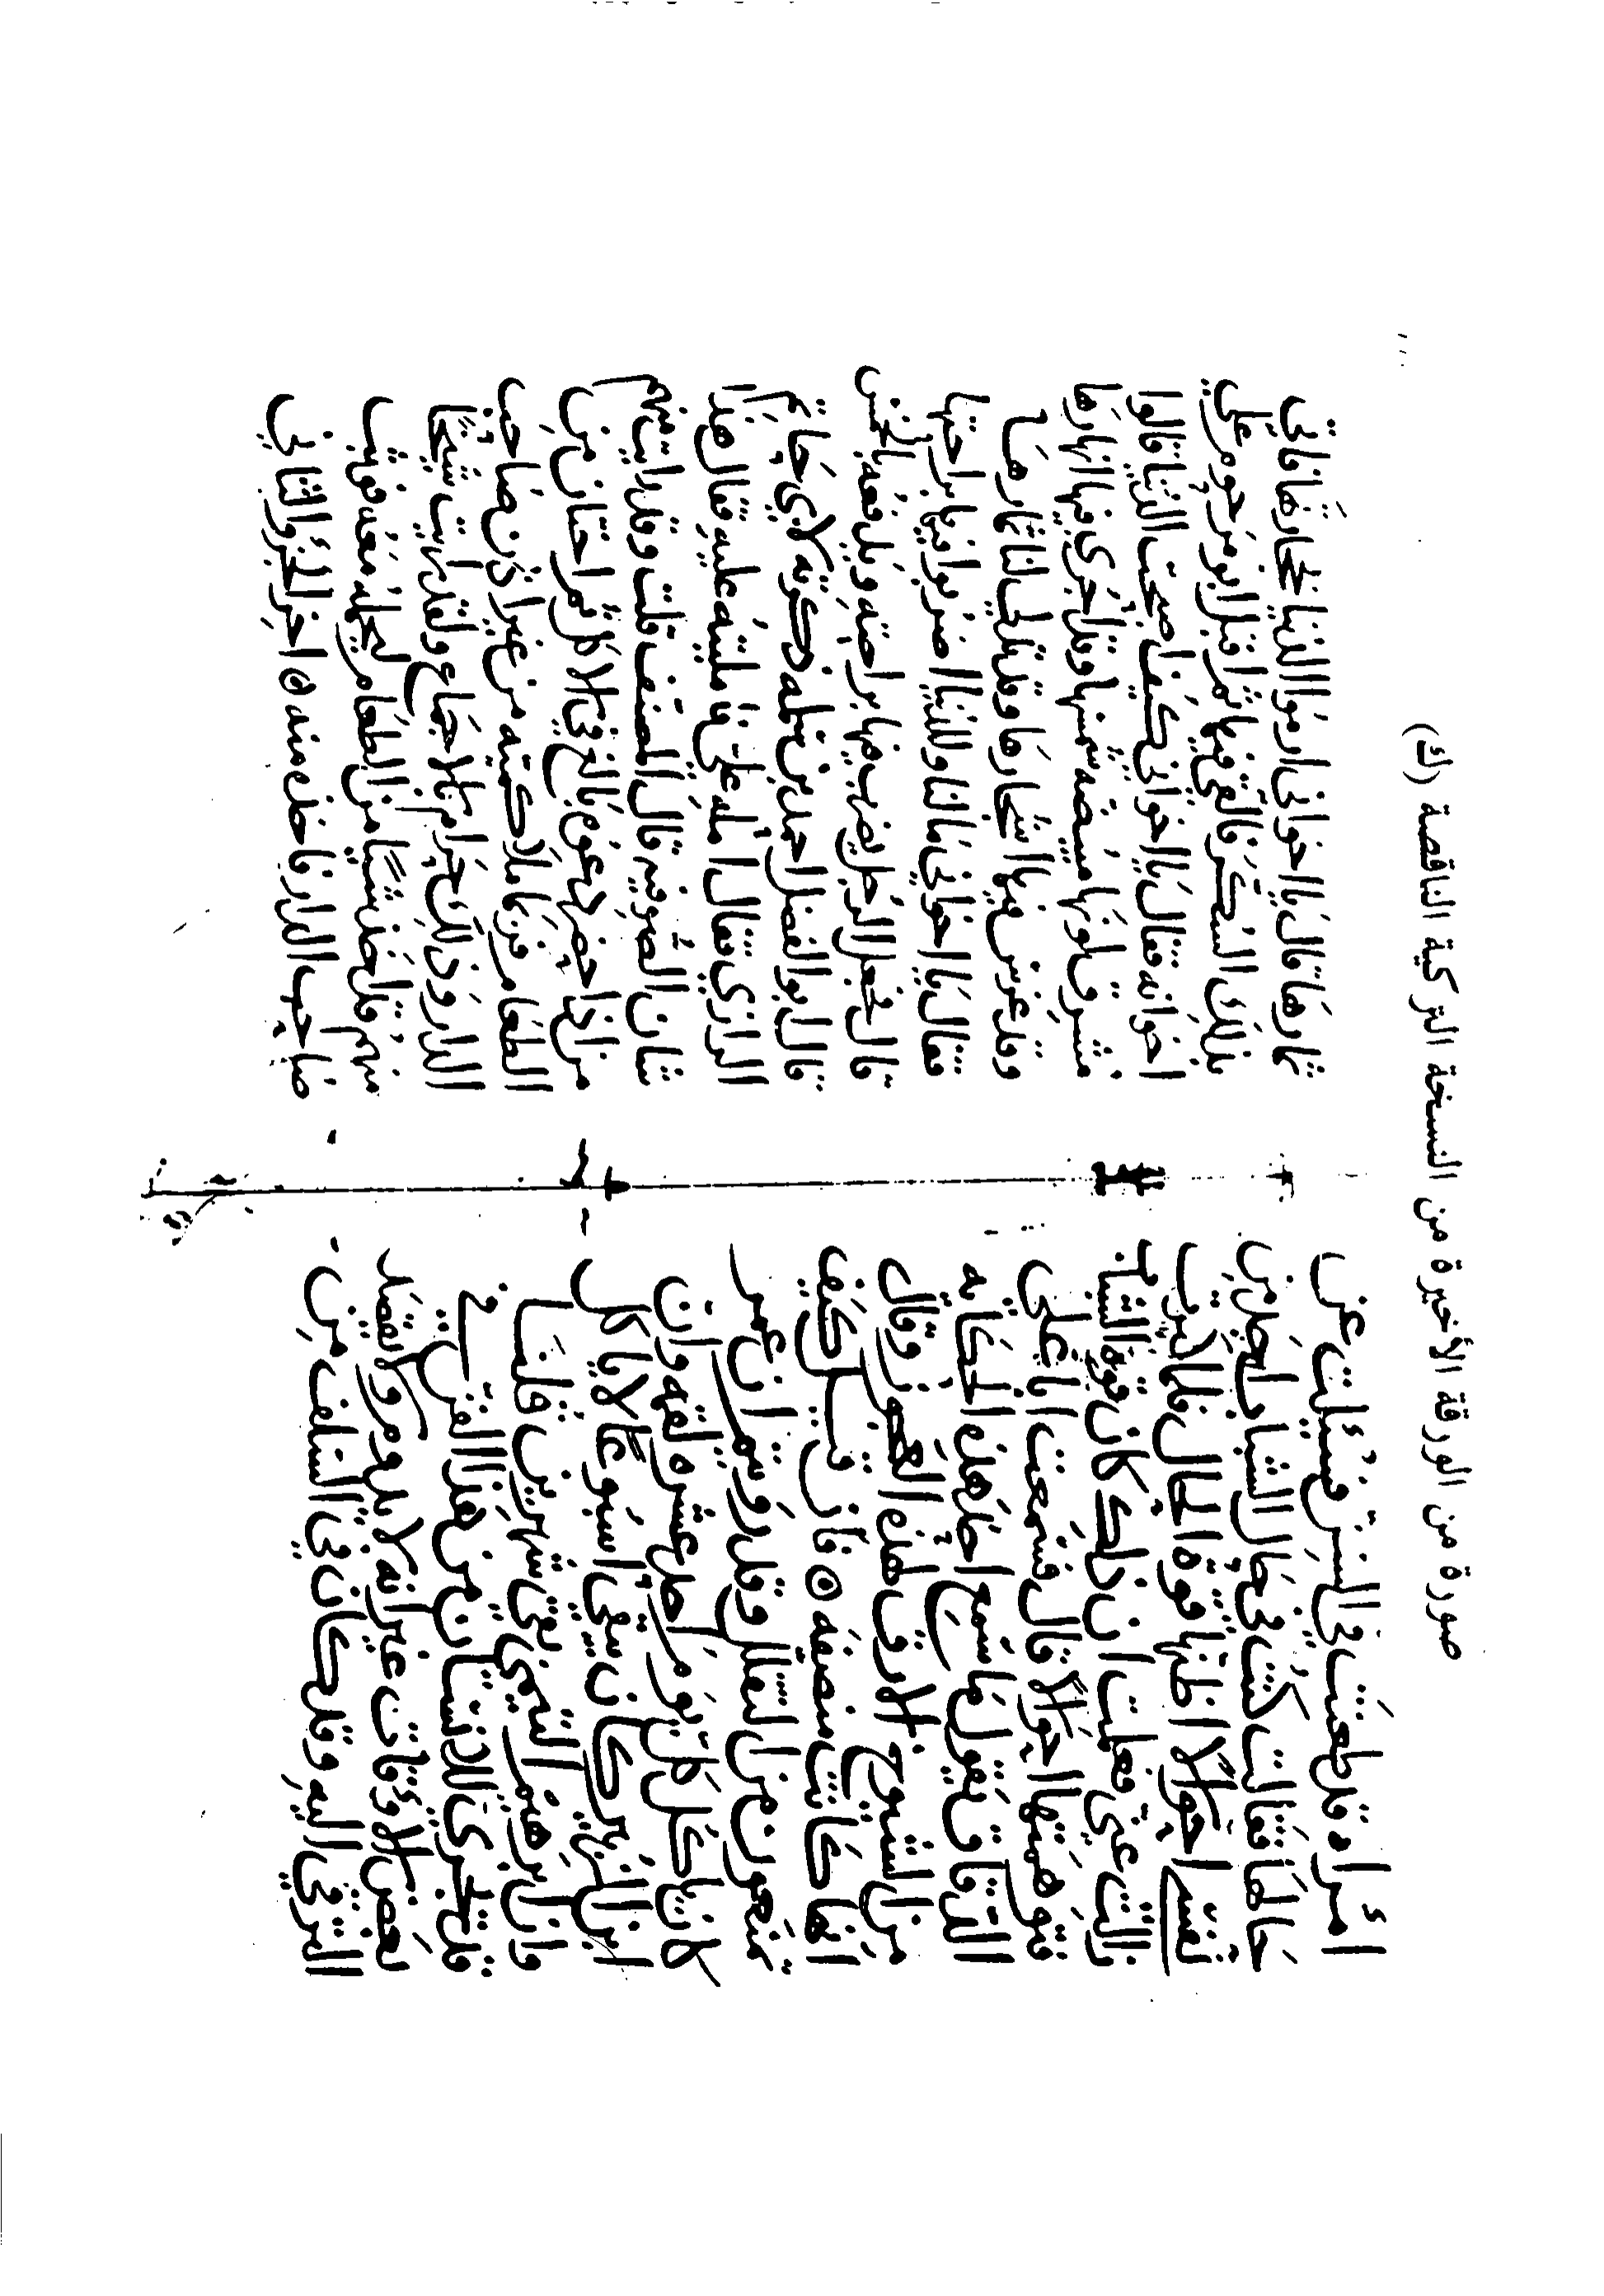 صورة من الورقة الأخيرة من النسخة التركية الناقصة (ك)
امرأة قد طعنت في السن فسئلت عن
حالها فقالت كنت في حال الشباب اجد من
نفسي احوالا اظنها قوة الحال فلما كبرت
زالت عني فعلمت ان ذلك كان قوة الشباب
فتوهمتها احوالا قال فسمعت ابا علي
الدقاق يقول ما سمع احد هذه الحكاية
من الشيوخ الا رق لهذه العجوز وقال
انها كانت منصفه ۞ فان قيل كيف
تمنعون من التقلل وقد رويتم ان عمر
كان ياكل كل يوم احد عشره لقمه وان
ابن الزبير كان يبقى اسبوعا لا ياكل
وان ابرهيم التيمي بقي شهرين قلنا
قد يجري للانسان من هذا الفن في
بعض الاوقات غير انه لا يدوم ولا يقصد
الترقي اليه وقد كان في السلف من
قال يا اخواني ارموا الدنيا
بذلك السكر فالقي فيها ثم اقبل ابو مرحوم على
اخوانه فقال يا اخواني كيف اصبحت الدنيا قالوا
مشرق لونها مبيضه شمسها وقد اجرى فيها انهارها
وقد غرس فيها اشجارها وقد تدلت لنا ثمارها
فقال يا اخواني مالنا وللدنيا اضربوا فيها براحتها
قال فجعل الرجل يضرب فيها براحته ويدفعه بالخمس
قال ابو الفضل احمد بن سلمه ذكرته لابي حاتم
الرازي فقال امله علي فامليته عليه فقال هذا
شان الصوفيه قال المصنف قلت وقد رايت منهم
من اذا حضر دعوه بالغ في الاكل ثم اختار من
الطعام فربما ملا كميه من غير اذن صاحب
الدار وذلك حرام بالاجماع ولقد رأيت شيخا
منهم قد اخذ شيئا من الطعام ليحمله معه فوثب
صاحب الدار فاخذه منه ۞ اخر الجزء الثاني